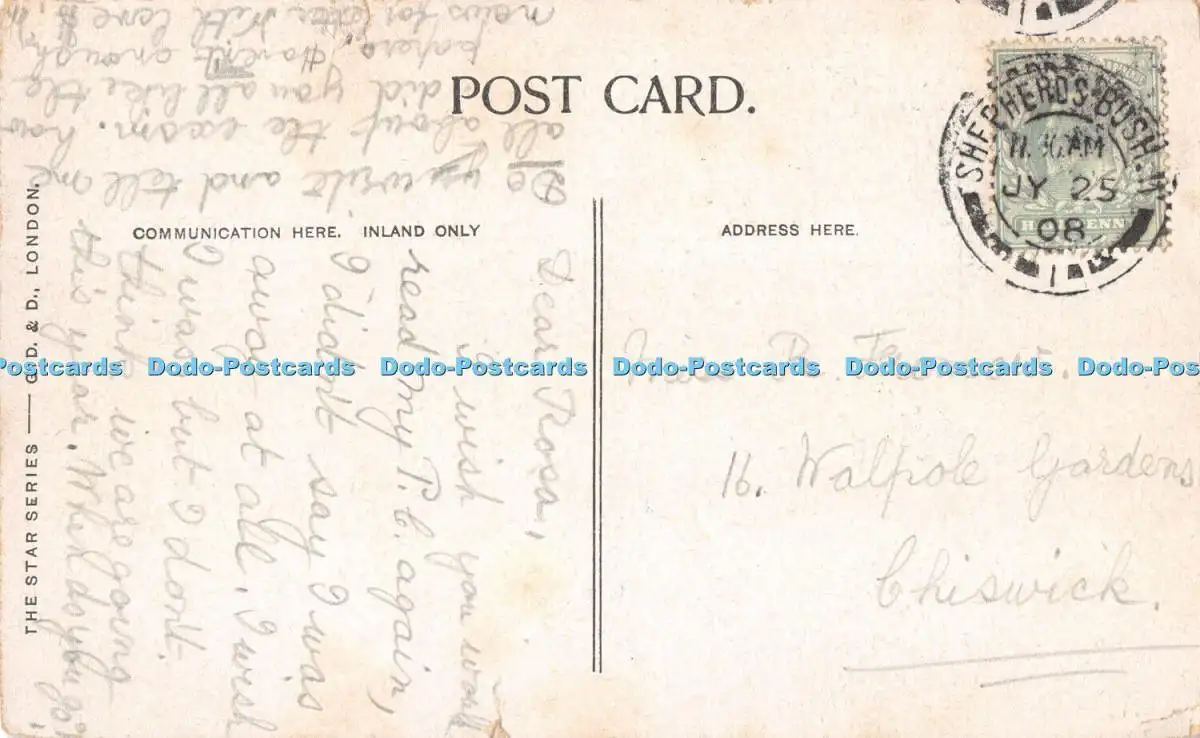 POST CARD.
COMMUNICATION HERE. INLAND ONLY
ADDRESS HERE.
THE STAR SERIES — G. D. & D., LONDON.
SHEPHERDS BUSH. W
AM
JY 25
08
Miss R.
16. Walpole Gardens
Chiswick.
Dear Rosa,
I wish you would
read my P.C. again,
I didn't say I was
away at all. I wish
I was but I don't
think we are going
this year. When do you go?
Do write and tell me
all about the exam. how
did you all like the
papers. Haven't enough
news for With love
Dodo-Postcards Dodo-Postcards Dodo-Postcards Dodo-Postcards